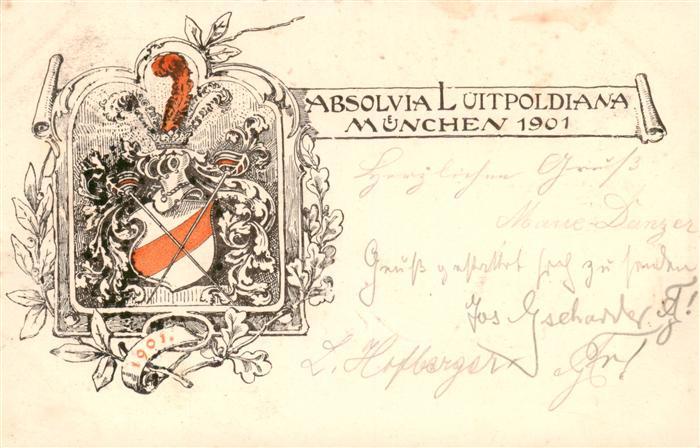 ABSOLVIA LUITPOLDIANA
MUENCHEN 1901
Herzlichen Gruß
Marie Danzer
Gruß gestattet sich zu senden
Jos
L. Hofberger
1901.